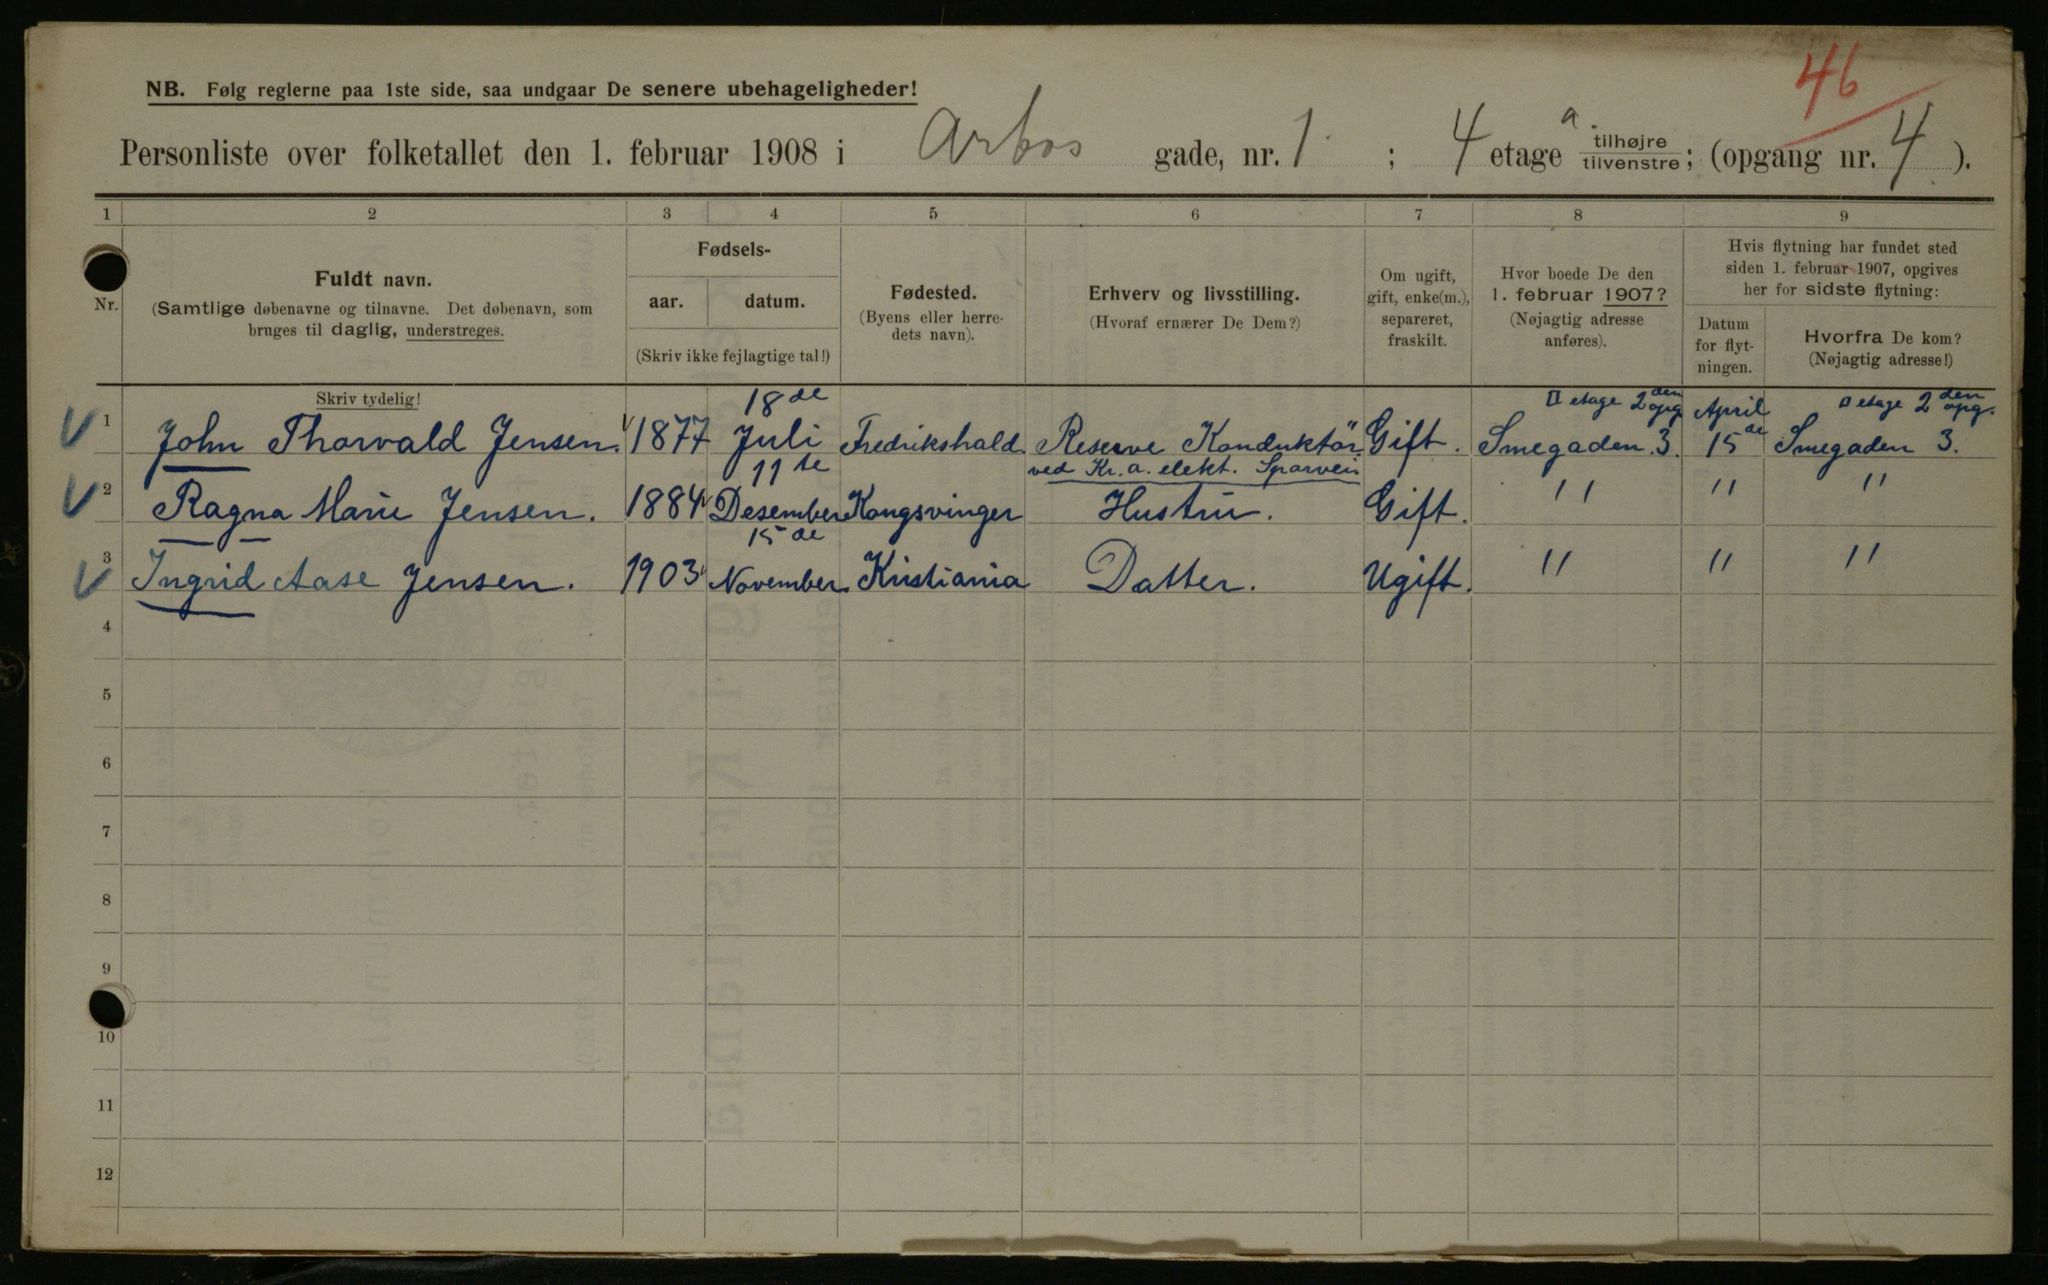 46
NB. Følg reglerne paa 1ste side, saa undgaar De senere ubehageligheder!
Personliste over folketallet den 1. februar 1908 i Arbos gade, nr. 1 ; 4 etage a tilhøjre tilvenstre; (opgang nr. 4 ).
1 2 3 4 5 6 7 8 9
Nr.
Fuldt navn.
(Samtlige døbenavne og tilnavne. Det døbenavn, som
bruges til daglig, understreges.
Skriv tydelig!
Fødsels-
aar. datum.
(Skriv ikke fejlagtige tal!)
Fødested.
(Byens eller herre-
dets navn).
Erhverv og livsstilling.
(Hvoraf ernærer De Dem?)
Om ugift,
gift, enke(m.),
separeret,
fraskilt.
Hvor boede De den
1. februar 1907?
(Nøjagtig adresse
anføres).
Hvis flytning har fundet sted
siden 1. februar 1907, opgives
her for sidste flytning:
Datum
for flyt-
ningen.
Hvorfra De kom?
(Nøjagtig adresse!)
18de etage 2den opg. April etage 2den opg.
1 John Thorvald Jensen. 1877 Juli Fredrikshald Reserve Konduktör Gift. Smegaden 3. 15de Smegaden 3.
11te ved Kr.a. elekt. Sporvei
2 Ragna Marie Jensen. 1884 Desember Kongsvinger Hustru. Gift. " " "
15de
3 Ingrid Aase Jensen. 1903 November. Kristiania Datter. Ugift. " " "
4
5
6
7
8
9
10
11
12